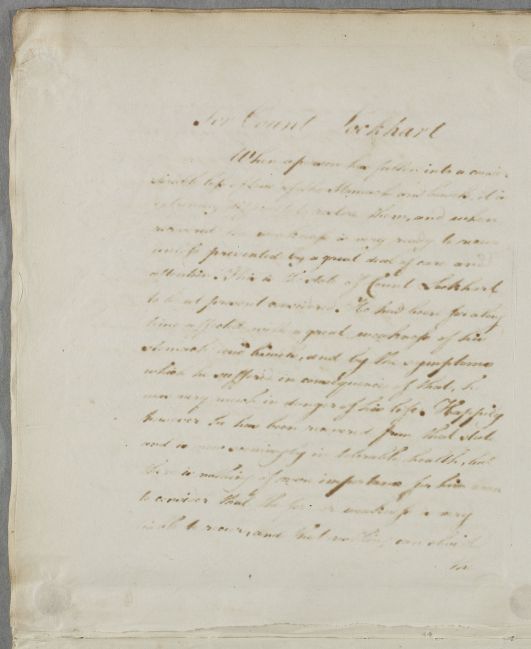 For Count Lockhart
When a person has fallen into a considerable
loss of tone of the Stomach and bowels, it is
extremely difficult to restore them, and when
restored the weakness is very ready to recur
unless prevented by a great deal of care and
attention. This is the state of Count Lockhart
to be at present considered. He had been for a long
time affected with a great weakness of his
Stomach and bowels, and by the symptoms
which he suffered in consequence of that, he
was very much in danger of his life. Happily
however he has been recovered from that state
and is now seemingly in tolerable health, but
there is nothing of more importance for him than
to consider that the former weakness is very
liable to recur, and that nothing can obviate